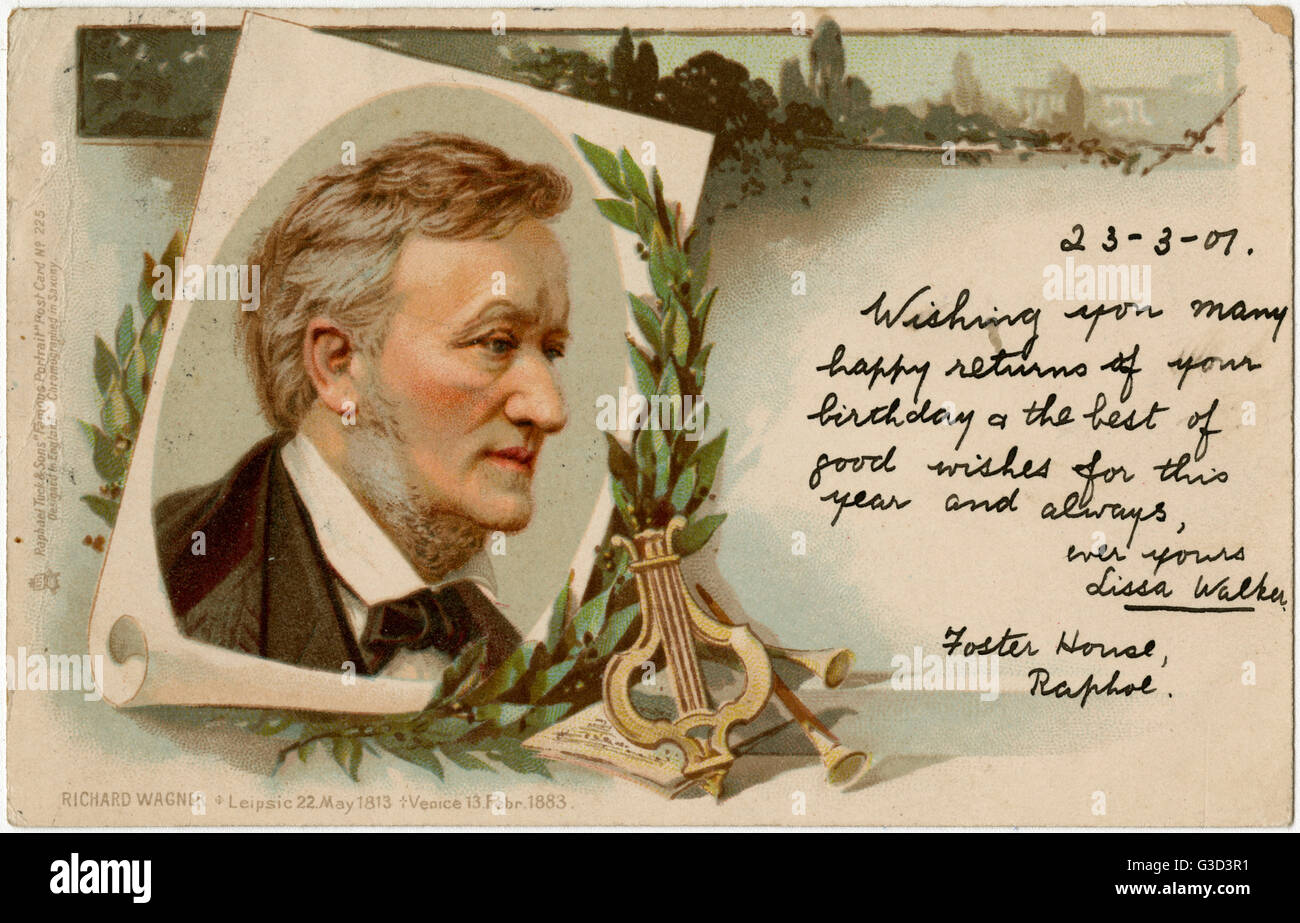 Raphael Tuck & Sons' "Famous Portrait" Post Card Nº 225
Designed in England. Chromographed in Saxony.
23-3-01.
Wishing you many
happy returns of your
birthday & the best of
good wishes for this
year and always,
ever yours
Lissa Walker.
Foster House,
Raphoe.
RICHARD WAGNER Leipsic 22.May 1813 †Venice 13.Febr.1883.
alamy
Image ID: G3D3R1
www.alamy.com